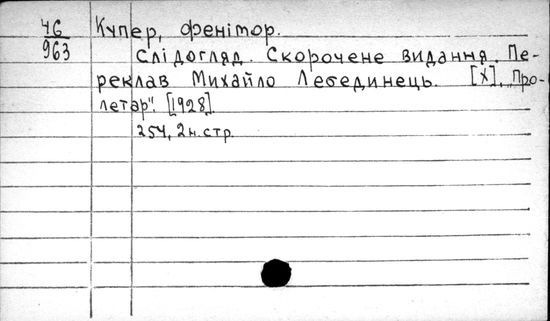 46
963
Купер, Фенімор.
Слідогляд. Скорочене видання. Пе-
реклав Михайло Лебединець. [Х]. „Про-
летар". [1928]
254, 2 н. стр.